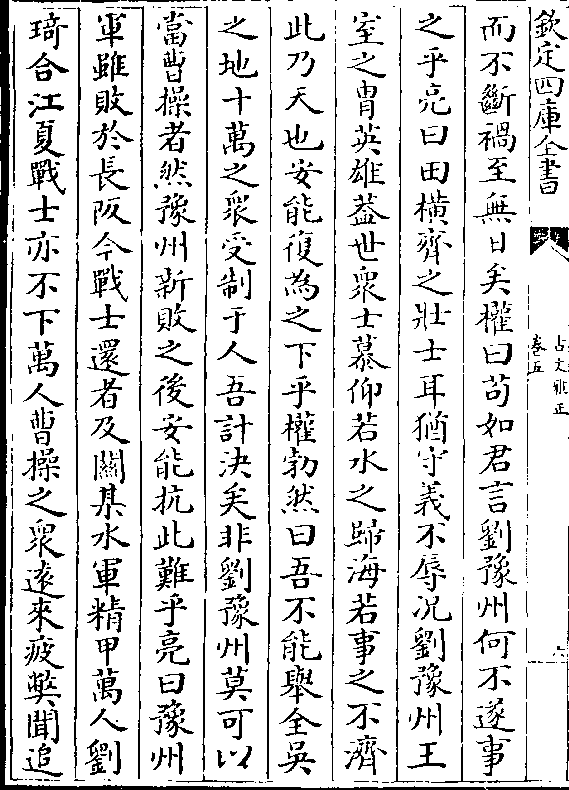 欽定四庫全書
古文雅正
卷五
而不斷禍至無日矣權曰苟如君言劉豫州何不遂事
之乎亮曰田橫齊之壯士耳猶守義不辱况劉豫州王
室之胄英雄葢世衆士慕仰若水之歸海若事之不濟
此乃天也安能復為之下乎權勃然曰吾不能舉全吳
之地十萬之衆受制于人吾計決矣非劉豫州莫可以
當曹操者然豫州新敗之後安能抗此難乎亮曰豫州
軍雖敗於長阪今戰士還者及關某水軍精甲萬人劉
琦合江夏戰士亦不下萬人曹操之衆逺來疲獘聞追